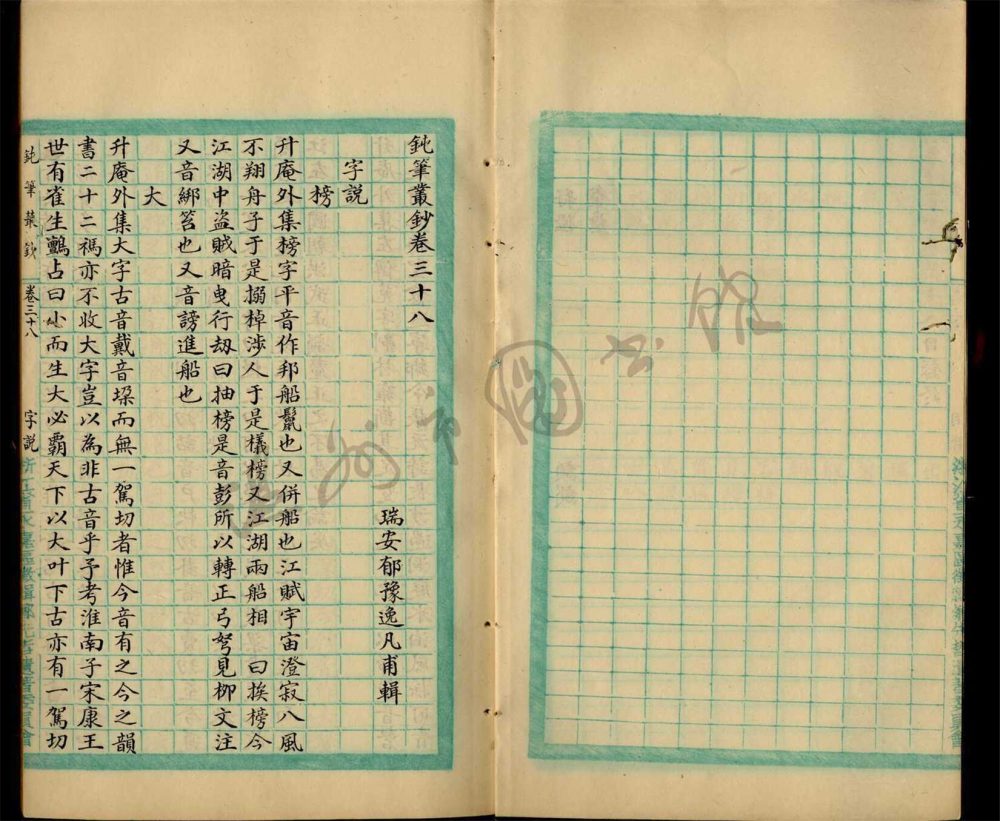 鈍筆叢鈔卷三十八
瑞安郁豫逸凡甫輯
字説
榜
升庵外集榜字平音作邦船鬣也又併船也江賦宇宙澄寂八風
不翔舟子于是搦棹涉人于是檥榜又江湖兩船相　曰挨榜今
江湖中盜賊暗曳行刼曰抽榜是音彭所以轉正弓弩見柳文注
又音綁笞也又音謗進船也
大
升庵外集大字古音戴音垜而無一駕切者惟今音有之今之韻
書二十二禡亦不收大字豈以為非古音乎予考淮南子宋康王
世有雀生鸇占曰小而生大必霸天下以大叶下古亦有一駕切
鈍筆叢鈔 卷三十八 字説